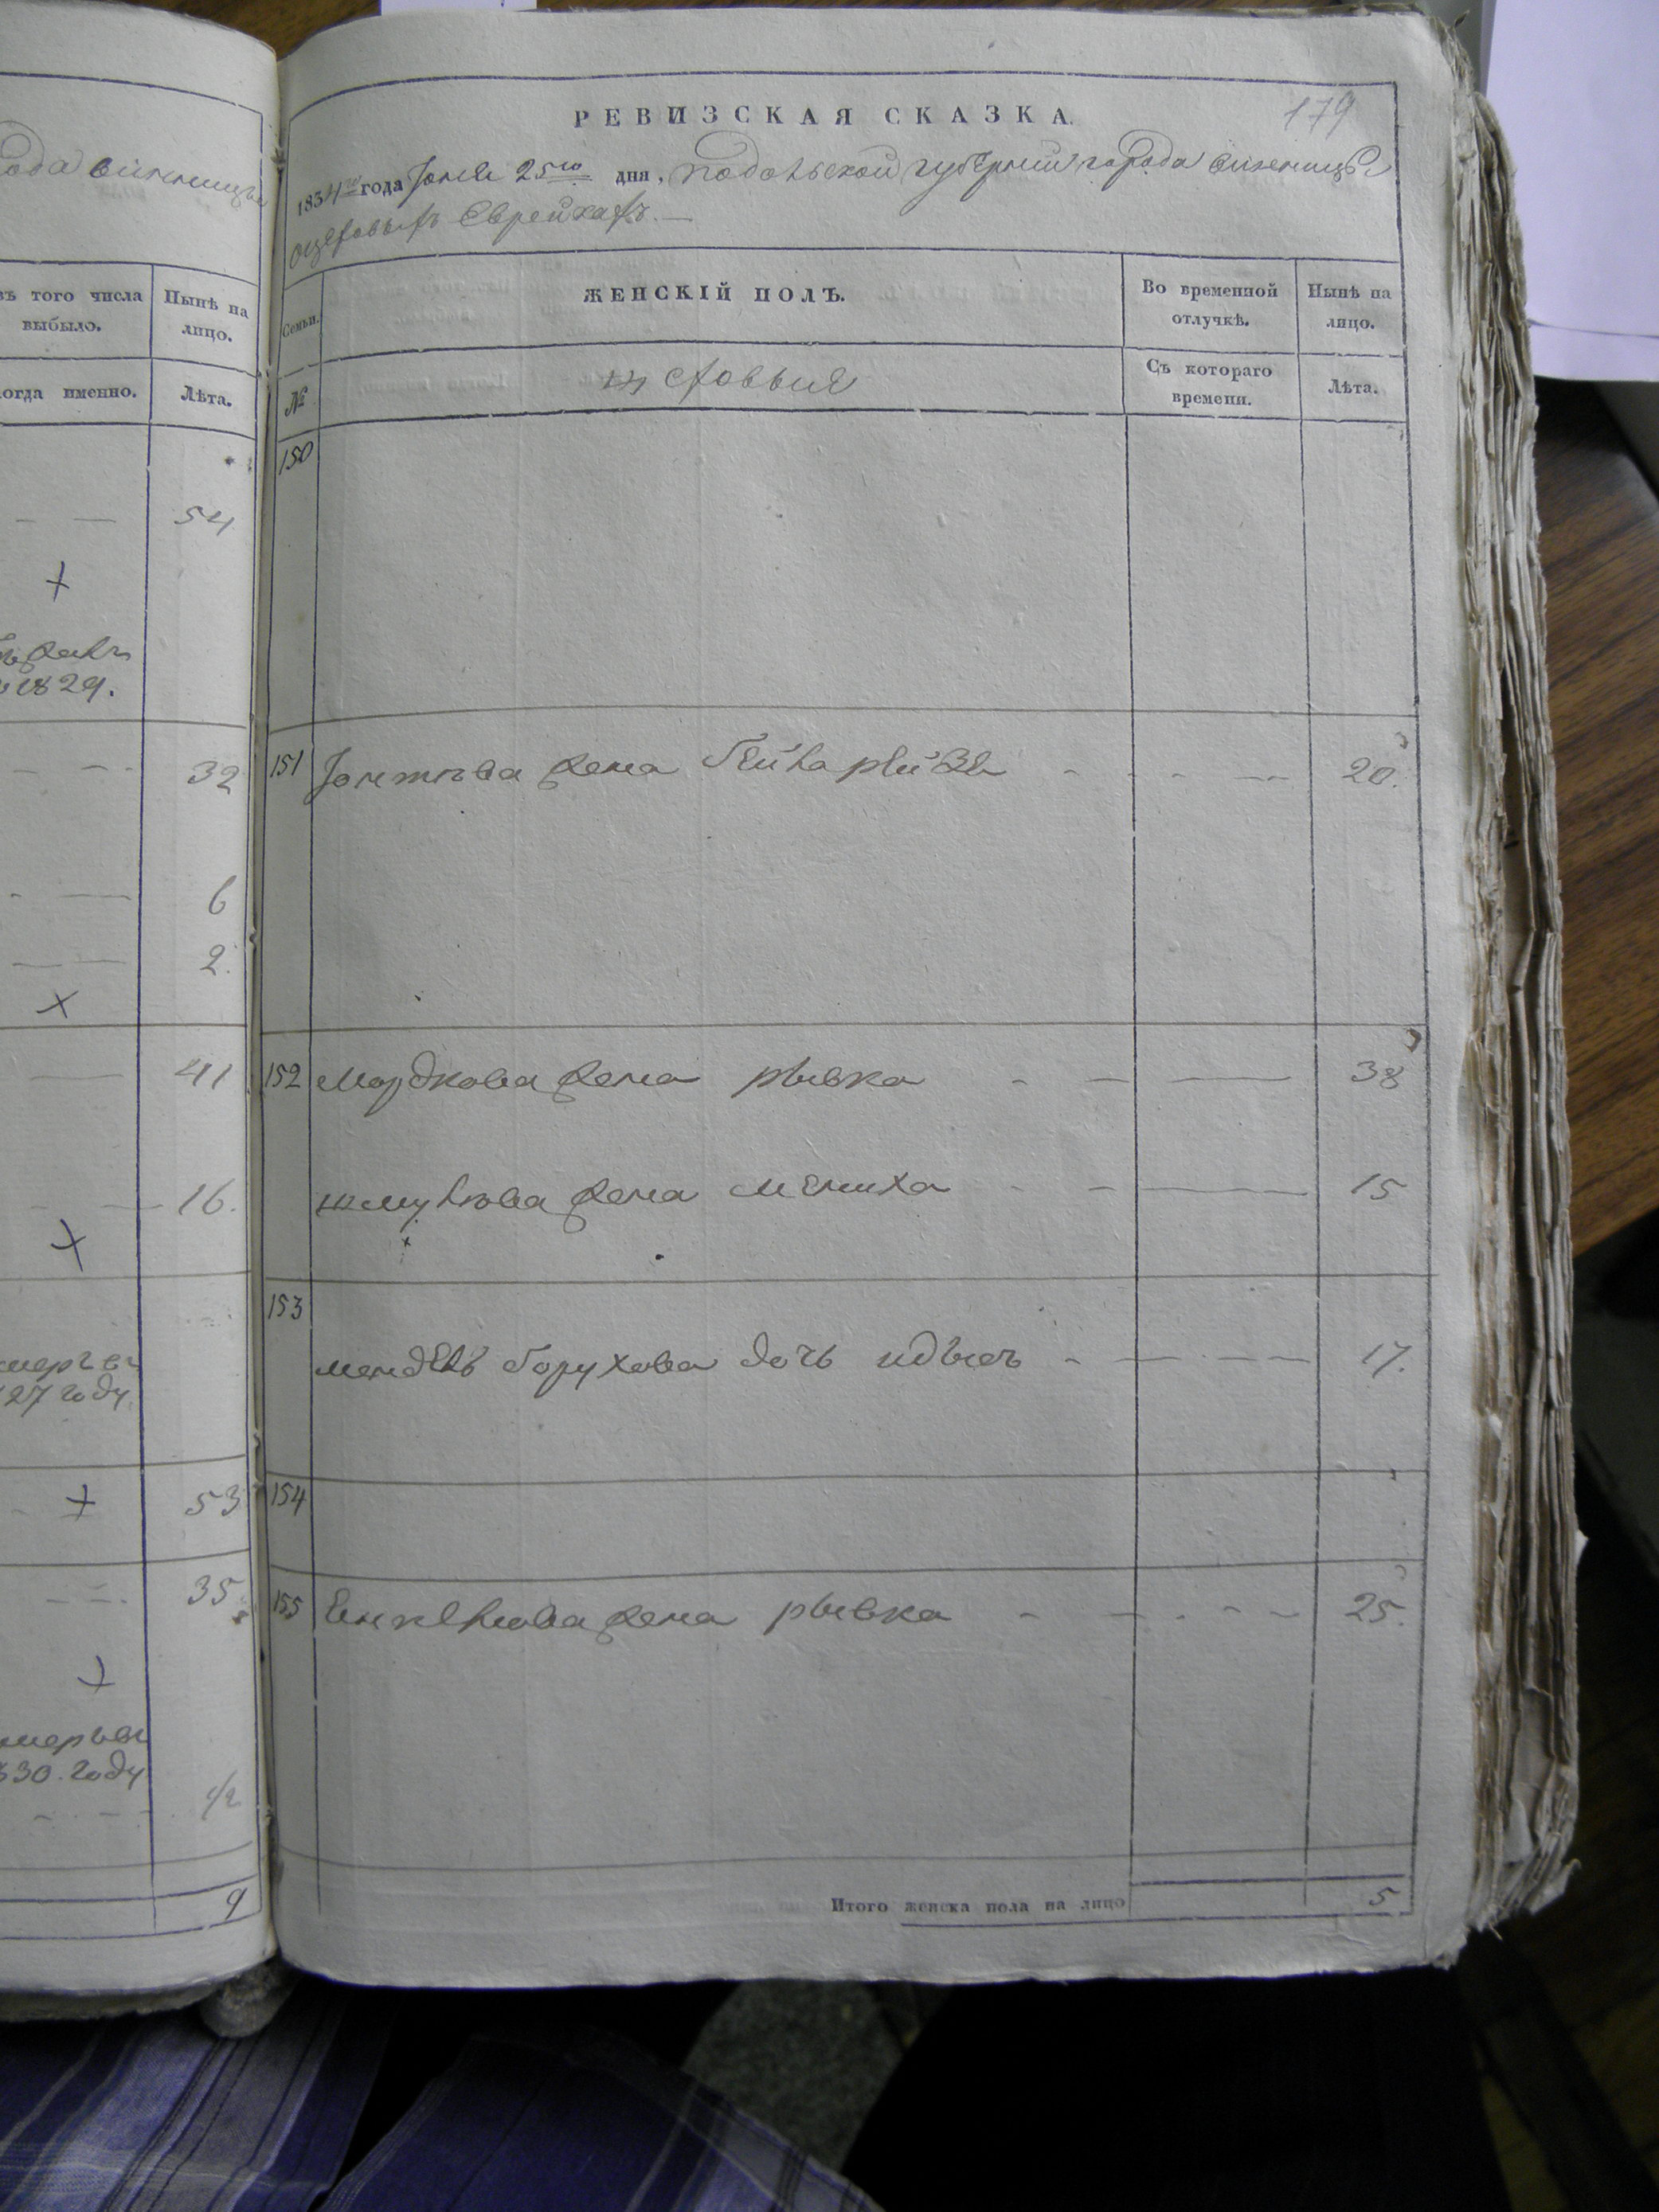 ода винницы
въ того числа
выбыло.
Нынѣ на
лицо.
огда именно.
Лѣта.
54
1829.
32
6
2
41
16.
меръ въ
27 году.
53
35
меръ въ
830. году
1/2
9
179
РЕВИЗСКАЯ СКАЗКА.
1834го года Іюня 25го дня, подольской губерніи города винницы
о еврейкахъ.
Семьи.
ЖЕНСКІЙ ПОЛЪ.
Во временной
отлучкѣ.
Нынѣ на
лицо.
№
Съ котораго
времени.
Лѣта.
150
151 жена бейла рейзя 20.
152 мордкова жена рывка 38
шмулюва жена мениха 15
153
менделѣ борухова дочь идысъ 17.
154
155 Енкелюва жена рывка 25.
Итого женска пола на лицо 5